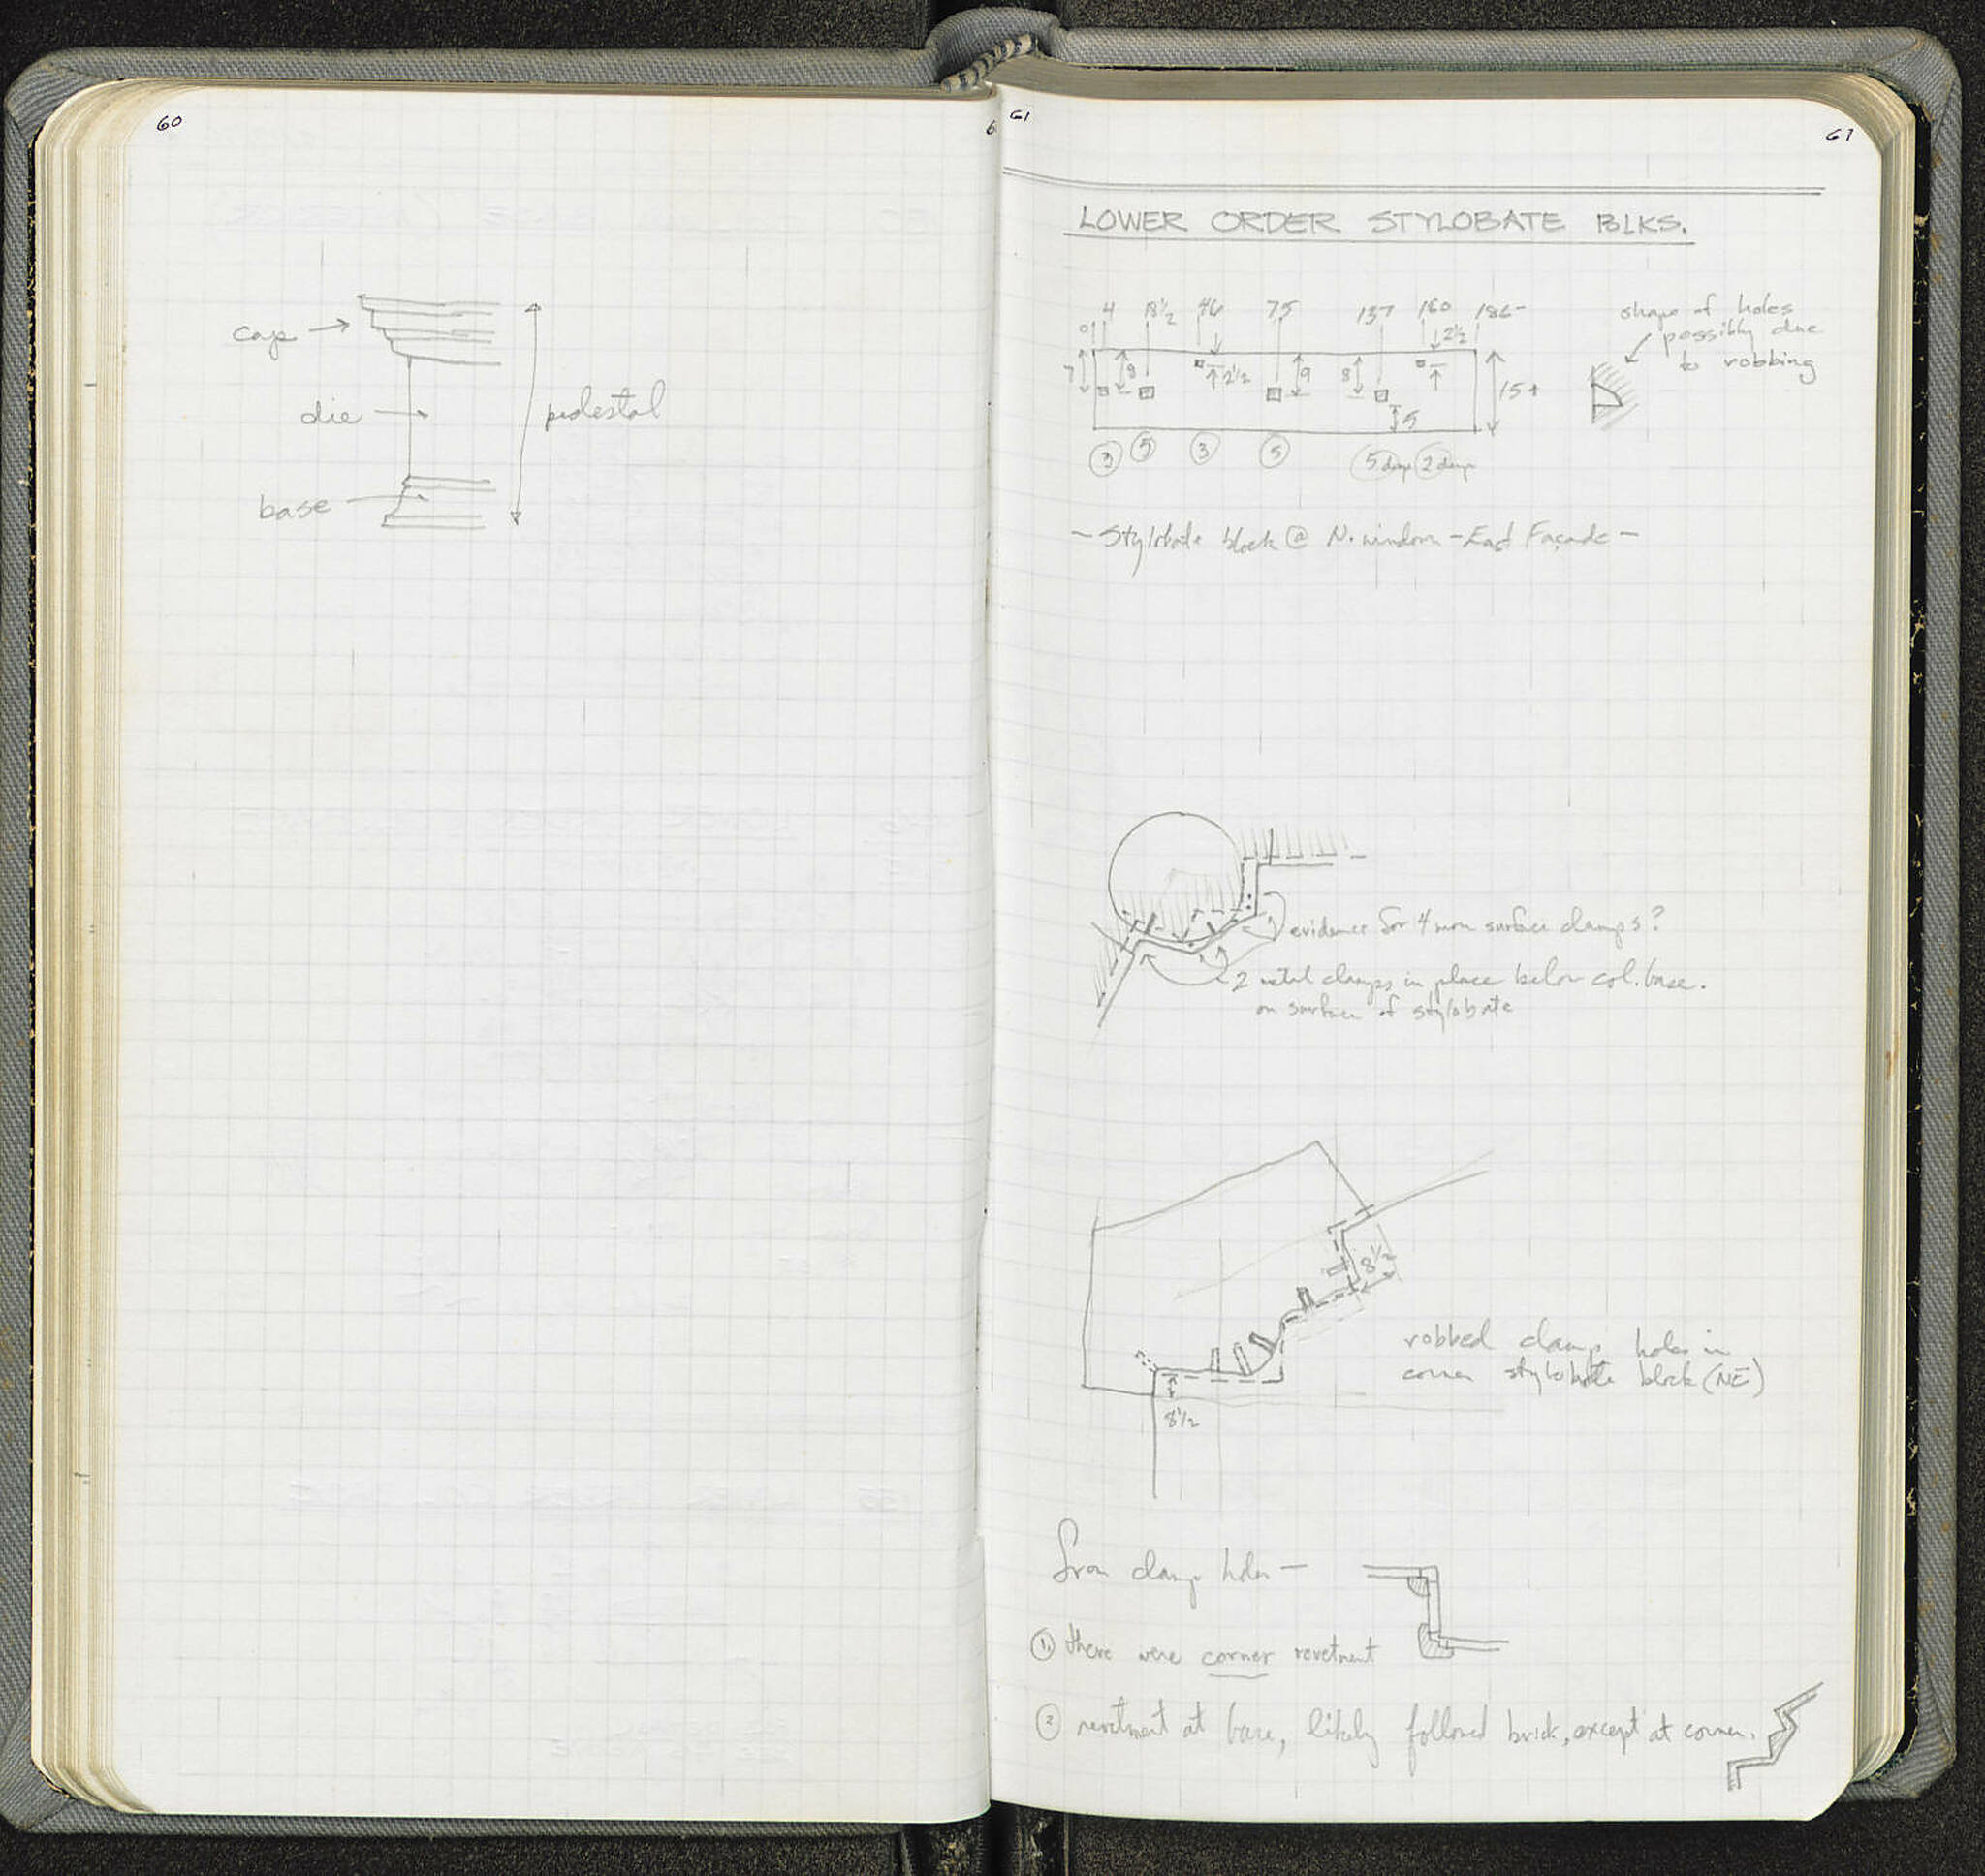 60
cap
die
pedestal
base
61
61
LOWER ORDER STYLOBATE BLKS.
0 4 18½ 46 75 137 160 186-
2½
7 8 2½ 9 8 15+
5
3 5 3 5 5 deep 2 deep
shape of holes
possibly due
to robbing
- Stylobate block @ N. window - East Façade -
evidence for 4 more surface clamps?
2 metal clamps in place below col. base.
on surface of stylobate
8½
robbed clamp holes in
corner stylobate block (NE)
8½
from clamp holes -
① there were corner revetment
② revetment at base, likely followed brick, except at corner.